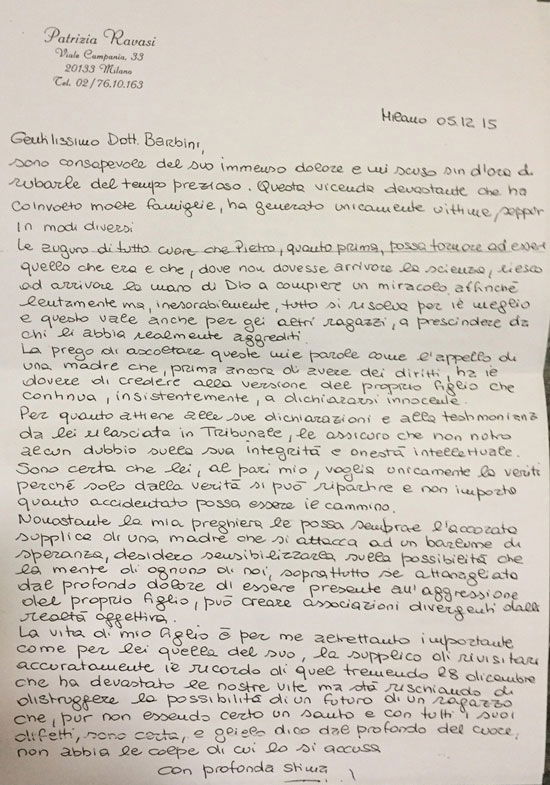 Patrizia Ravasi
Viale Campania, 33
20133 Milano
Tel. 02/76.10.163
Milano 05.12.15
Gentilissimo Dott. Barbini,
sono consapevole del suo immenso dolore e mi scuso sin d'ora di
rubarle del tempo prezioso. Questa vicenda devastante che ha
coinvolto molte famiglie, ha generato unicamente vittime, seppur
in modi diversi
Le auguro di tutto cuore che Pietro, quanto prima, possa tornare ad esser
quello che era e che, dove non dovesse arrivare la scienza, riesca
ad arrivare la mano di Dio a compiere un miracolo affinché
lentamente ma, inesorabilmente, tutto si risolva per il meglio
e questo vale anche per gli altri ragazzi, a prescindere da
chi li abbia realmente aggrediti.
La prego di ascoltare queste mie parole come l'appello di
una madre che, prima ancora di avere dei diritti, ha il
dovere di credere alla versione del proprio figlio che
continua, insistentemente, a dichiararsi innocente.
Per quanto attiene alle sue dichiarazioni e alla testimonianz
da lei rilasciata in Tribunale, le assicuro che non nutro
alcun dubbio sulla sua integrità e onestà intellettuale.
Sono certa che lei, al pari mio, voglia unicamente la verità
perché solo dalla verità si può ripartire e non importa
quanto accidentato possa essere il cammino.
Nonostante la mia preghiera le possa sembrae l'accorata
supplica di una madre che si attacca ad un barlume di
speranza, desidero sensibilizzarla sulla possibilità che
la mente di ognuno di noi, soprattutto se attanagliata
dal profondo dolore di essere presente all'aggressione
del proprio figlio, può creare associazioni divergenti dalla
realtà oggettiva.
La vita di mio figlio è per me altrettanto importante
come per lei quella del suo, la supplico di rivisitare
accuratamente il ricordo di quel tremendo 28 dicembre
che ha devastato le nostre vite ma sta rischiando di
distruggere la possibilità di un futuro di un ragazzo
che, pur non essendo certo un santo e con tutti i suoi
difetti, sono certa, e glielo dico dal profondo del cuore,
non abbia le colpe di cui lo si accusa
con profonda stima